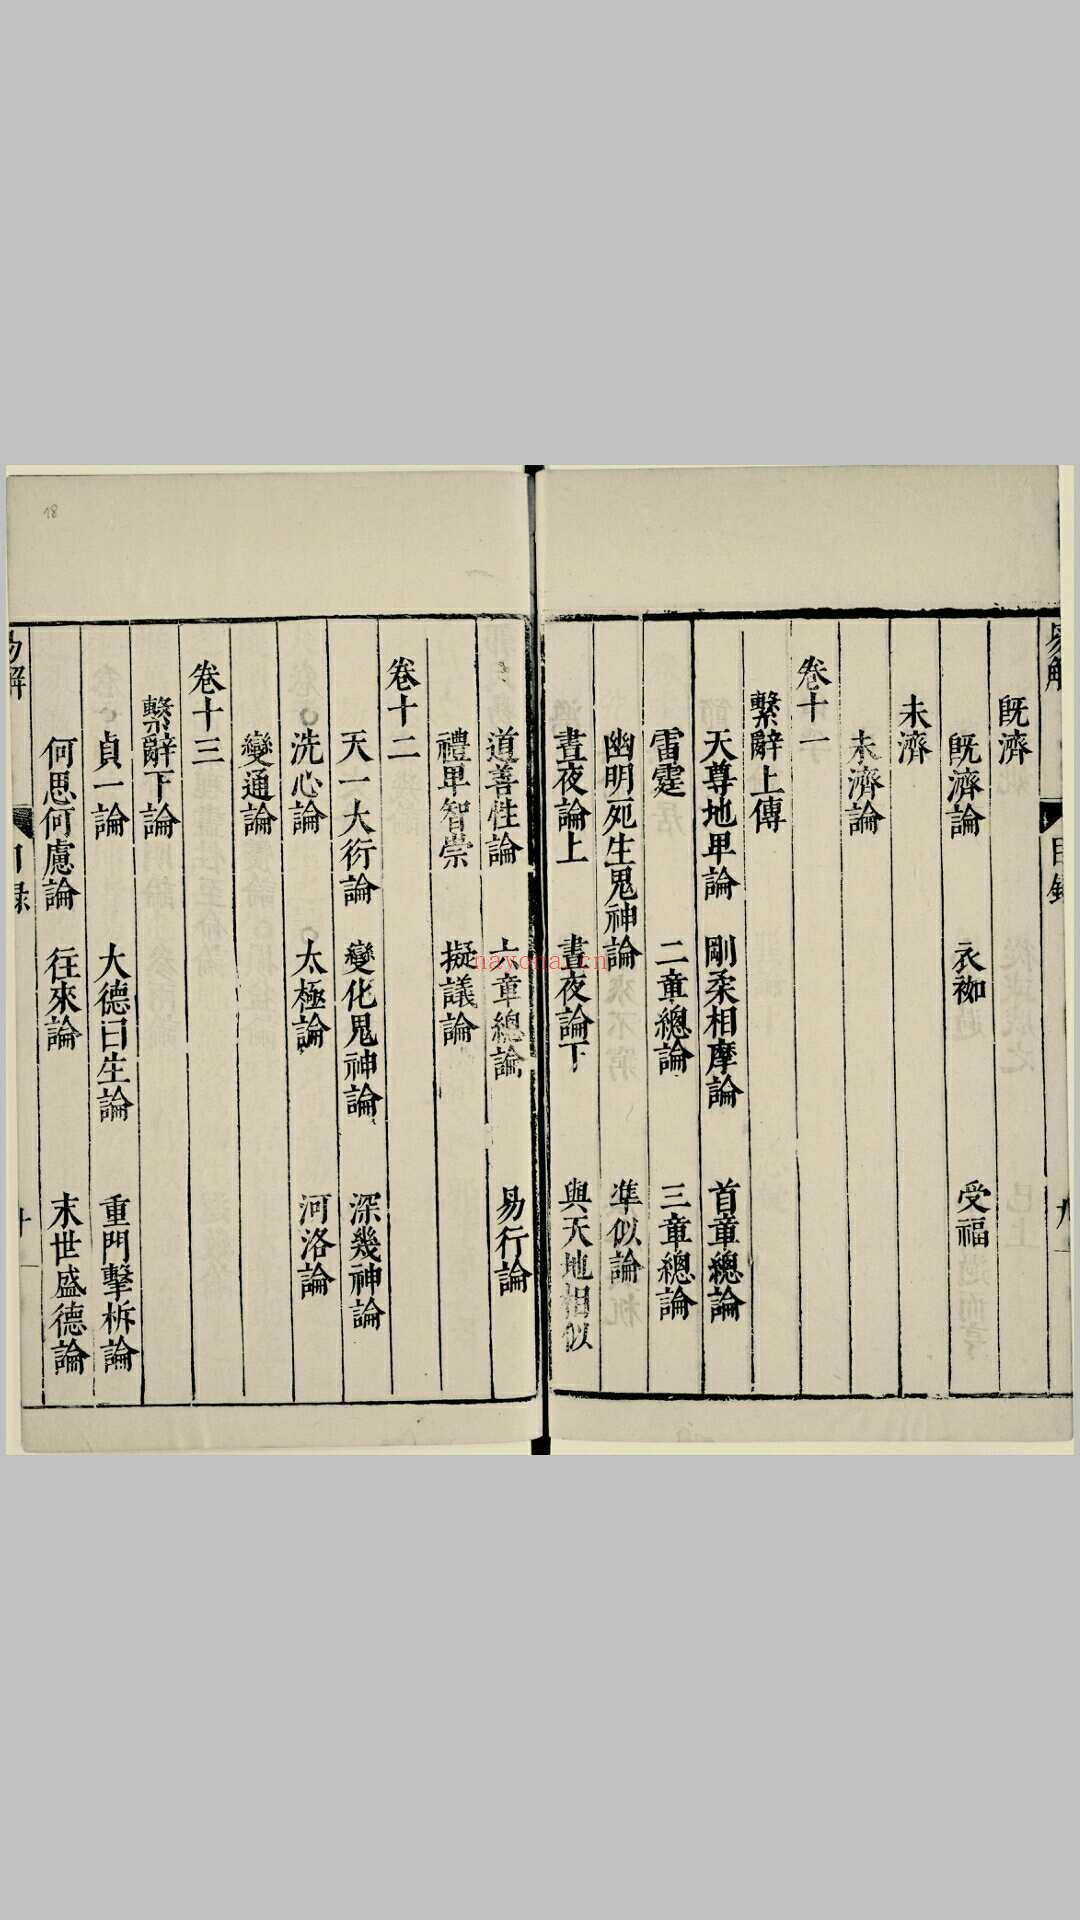 易解
目錄
九
既濟
既濟論 衣袽 受福
未濟
未濟論
卷十一
繫辭上傳
天尊地卑論 剛柔相摩論 首章總論
雷霆 二章總論 三章總論
幽明死生鬼神論 準似論
晝夜論上 晝夜論下 與天地相似
道善性論 六章總論 易行論
禮卑智崇 擬議論
卷十二
天一大衍論 變化鬼神論 深幾神論
洗心論 太極論 河洛論
變通論
卷十三
繫辭下論
貞一論 大德曰生論 重門擊柝論
何思何慮論 往來論 末世盛德論
易解
目錄
十
18
nayona.cn